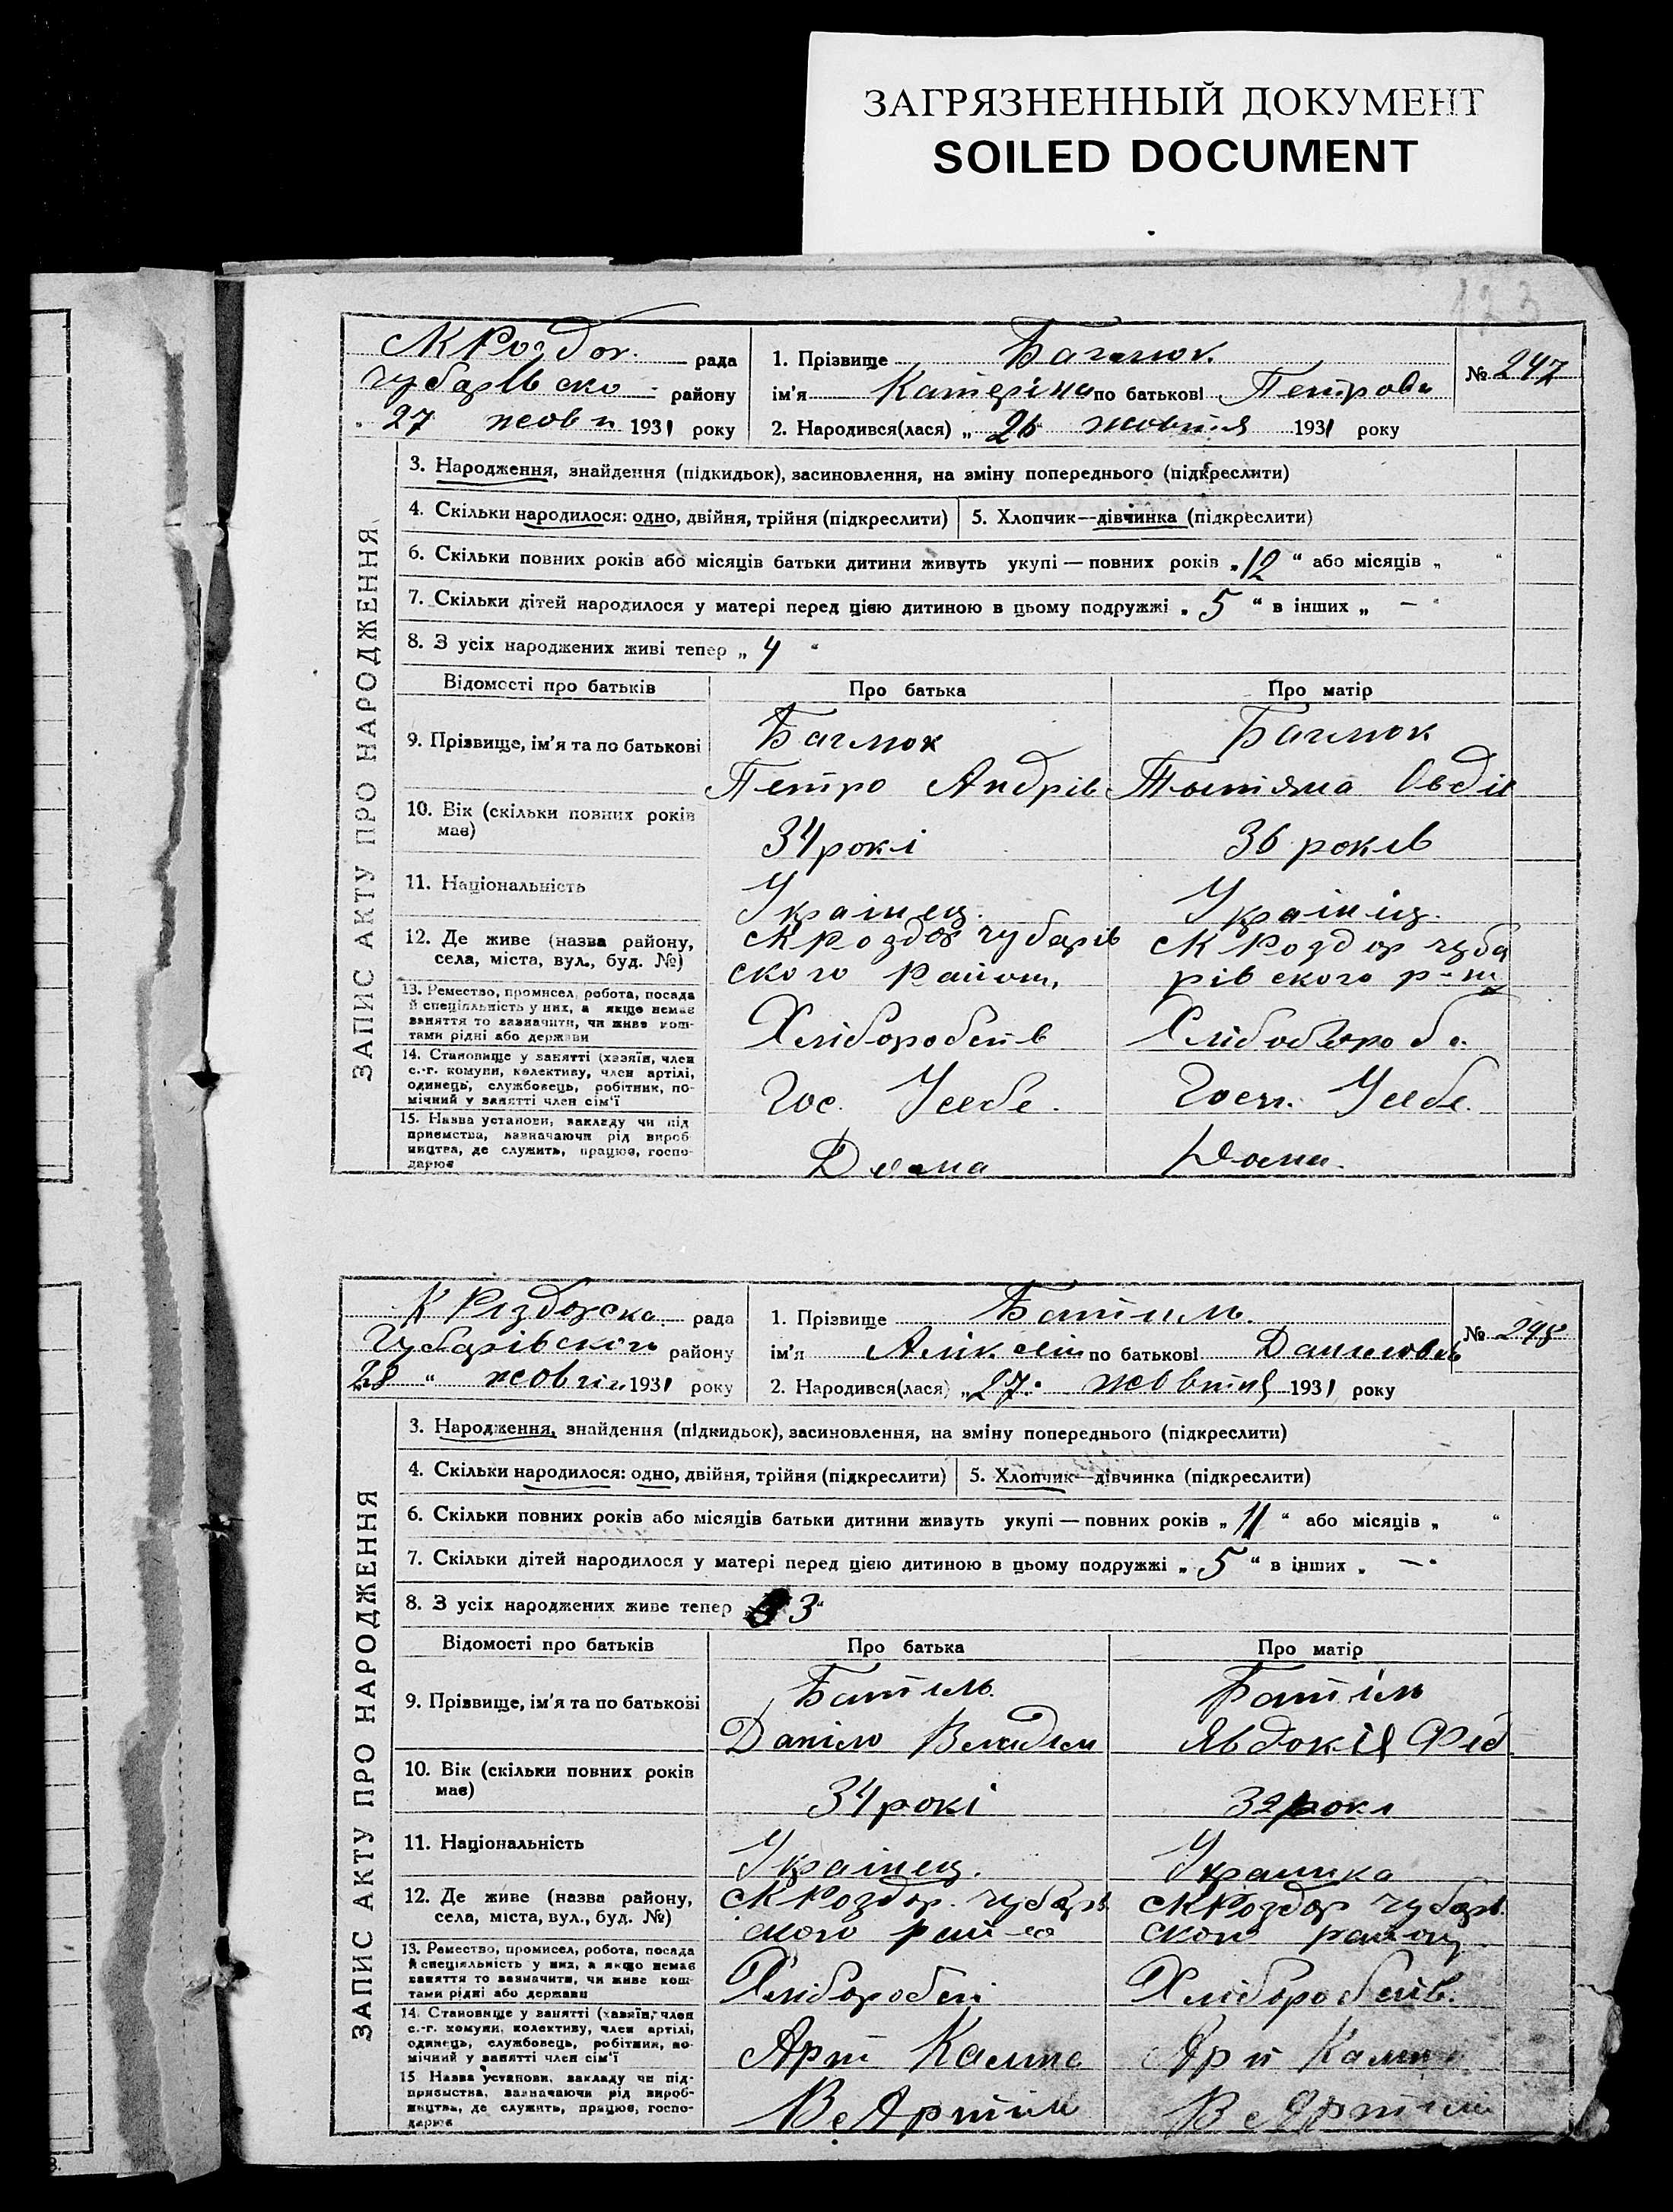 ЗАГРЯЗНЕННЫЙ ДОКУМЕНТ
SOILED DOCUMENT
123
рада
району
27 жовтн 1931 року
1. Прізвище
ім'я Катеріна по батькові Петрова
2. Народився(лася) „ 26 жовтня 1931 року
№ 247
ЗАПИС АКТУ ПРО НАРОДЖЕННЯ
3. Народження, знайдення (підкидьок), засиновлення, на зміну попереднього (підкреслити)
4. Скільки народилося: одно, двійня, трійня (підкреслити)
5. Хлопчик—дівчинка (підкреслити)
6. Скільки повних років або місяців батьки дитини живуть укупі — повних років „ 12 “ або місяців „ “
7. Скільки дітей народилося у матері перед цією дитиною в цьому подружжі „ 5 “ в інших „ — “
8. З усіх народжених живі тепер „ 4 “
Відомості про батьків
Про батька
Про матір
9. Прізвище, ім'я та по батькові
Петро Андрів
Овдіє
10. Вік (скільки повних років має)
34 рокі
36 років
11. Національність
Українец.
Українец.
12. Де живе (назва району,
села, міста, вул., буд. №)
ского
рівского р-ну
13. Ремество, промисел, робота, посада
й спеціяльність у них, а якщо немає
заняття то зазначити, чи живе кош-
тами рідні або держави
14. Становище у занятті (хазяїн, член
с.-г. комуни, колективу, член артілі,
одинець, службовець, робітник, по-
мічний у занятті член сім'ї
Гос. Усебе.
Госп. Усебе.
15. Назва установи, закладу чи під
приємства, зазначаючи рід вироб
ництва, де служить, працює, госпо-
дарює
Дома
Дома.
рада
Чубарівского району
28 “ 1931 року
1. Прізвище Батіль.
ім'я по батькові
2. Народився(лася) „ 27. жовтня 1931 року
№ 248
ЗАПИС АКТУ ПРО НАРОДЖЕННЯ
3. Народження, знайдення (підкидьок), засиновлення, на зміну попереднього (підкреслити)
4. Скільки народилося: одно, двійня, трійня (підкреслити)
5. Хлопчик—дівчинка (підкреслити)
6. Скільки повних років або місяців батьки дитини живуть укупі — повних років „ 11 “ або місяців „ “
7. Скільки дітей народилося у матері перед цією дитиною в цьому подружжі „ 5 “ в інших „ — “
8. З усіх народжених живе тепер 3 “
Відомості про батьків
Про батька
Про матір
9. Прізвище, ім'я та по батькові
Батіль.
Батіль
Даніло
Явдокія Фед.
10. Вік (скільки повних років має)
34 рокі
32 рокі
11. Національність
Українец.
Українка
12. Де живе (назва району,
села, міста, вул., буд. №)
ского
ского району
13. Ремество, промисел, робота, посада
й спеціяльність у них, а якщо немає
заняття то зазначити, чи живе кош-
тами рідні або держави
14. Становище у занятті (хазяїн, член
с.-г. комуни, колективу, член артілі,
одинець, службовець, робітник, по-
мічний у занятті член сім'ї
15 Назва установи, закладу чи під-
приємства, зазначаючи рід вироб-
ництва, де служить, працює, госпо-
дарює
В Артіли
В Артіли